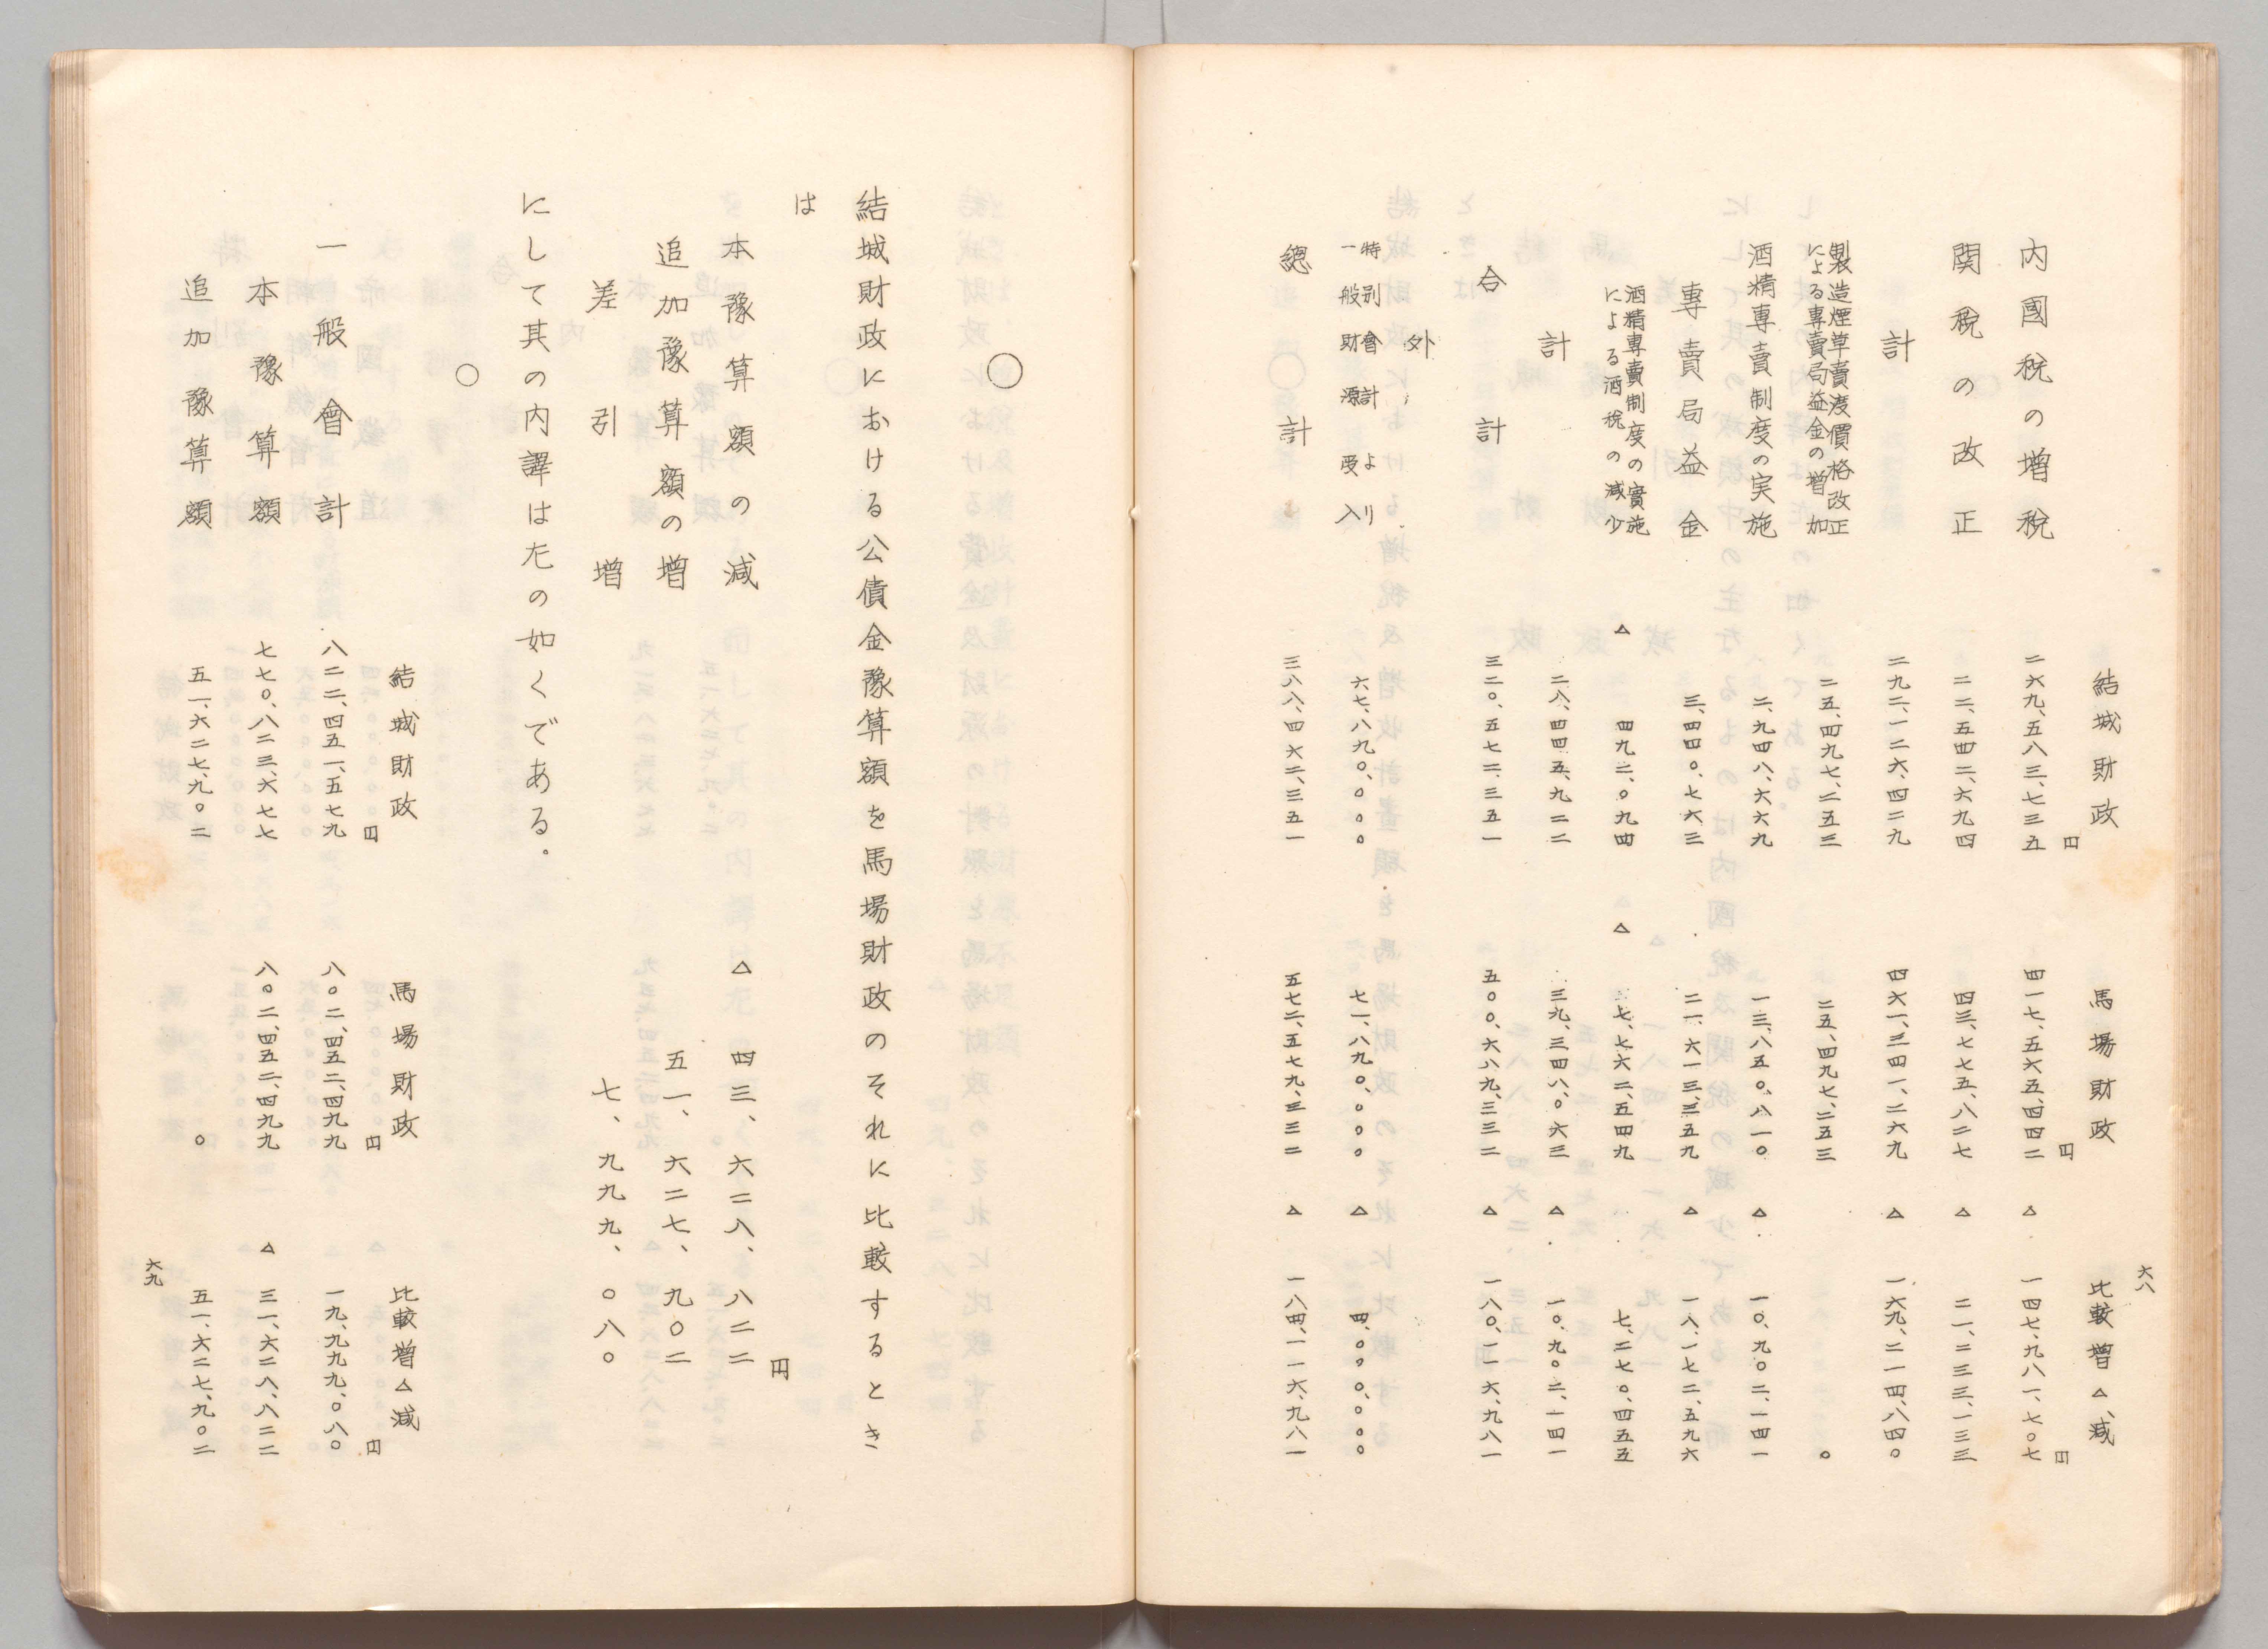 六八
結城財政　馬場財政　比較増△減
円　円　円
内國税の増税　二六九、五八三、七三五　四一七、五六五、四四二　△一四七、九八一、七〇七
関税の改正　二二、五四二、六九四　四三、七七五、八二七　△二一、二三三、一三三
計　二九二、一二六、四二九　四六一、三四一、二六九　△一六九、二一四、八四〇
製造煙草賣渡價格改正
による専賣局益金の増加　二五、四九七、二五三　二五、四九七、二五三　〇
酒精専賣制度の実施　二、九四八、六六九　一三、八五〇、八一〇　△一〇、九〇二、一四一
専賣局益金　三、四四〇、七六三　二一、六一三、三五九　△一八、一七二、五九六
酒精専賣制度の實施
による酒税の減少　△四九二、〇九四　△七、七六二、五四九　七、二七〇、四五五
計　二八、四四五、九二二　三九、三四八、〇六三　△一〇、九〇二、一四一
合計　三二〇、五七二、三五一　五〇〇、六八九、三三二　△一八〇、一一六、九八一
外
特別會計より
一般財源受入　六七、八九〇、〇〇〇　七一、八九〇、〇〇〇　△四、〇〇〇、〇〇〇
總計　三八八、四六二、三五一　五七二、五七九、三三二　△一八四、一一六、九八一
〇
結城財政における公債金豫算額を馬場財政のそれに比較するとき
は
円
本豫算額の減　△四三、六二八、八二二
追加豫算額の増　五一、六二七、九〇二
差引増　七、九九九、〇八〇
にして其の内譯は左の如くである。
〇
結城財政　馬場財政　比較増△減
円　円　円
一般會計　八二二、四五一、五七九　八〇二、四五二、四九九　一九、九九九、〇八〇
本豫算額　七七〇、八二三、六七七　八〇二、四五二、四九九　△三一、六二八、八二二
追加豫算額　五一、六二七、九〇二　〇　五一、六二七、九〇二
六九